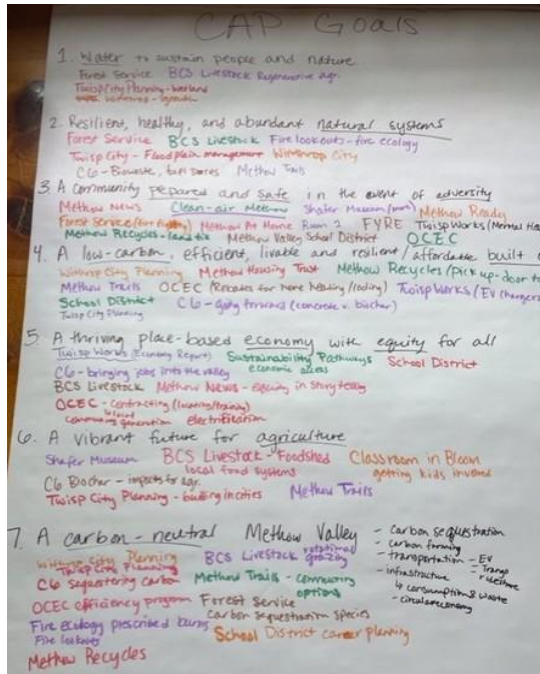 CAP Goals
1. Water to sustain people and nature
Forest Service BCS Livestock Regenerative agr.
Twisp City Planning - wetland
2. Resilient, healthy, and abundant natural systems
Forest Service BCS Livestock Fire lookouts - fire ecology
Twisp City - Floodplain management Winthrop City
C6 - Biowaste, burn scares Methow Trails
3. A community pepared and safe in the event of adversity
Methow News Clean-air Methow Shafer Museum Methow Ready
Forest Service Methow At Home Room 2 FYRE TwispWorks (Mental Hea
Methow Recycles - Methow Valley School District OCEC
4. A low-carbon, efficient, livable and resilient/affordable built
Winthrop City Planning Methow Housing Trust Methow Recycles/pick up-door to
Methow Trails OCEC (Rebates for home heating/cooling) TwispWorks (EV chargers
School District C6 - going forward (concrete v. biochar)
Twisp City Planning
5. A thriving place-based economy with equity for all
TwispWorks (Economy Report) Sustainability Pathways School District
C6 - bringing jobs into the valley economic access
BCS Livestock Methow News - equity in storytelling
OCEC - contracting (locating/training)
community generation electrification
6. A vibrant future for agriculture
Shafer Museum BCS Livestock - Foodshed Classroom in Bloom
local food systems getting kids involved
C6 Biochar - impacts for agr.
Twisp City Planning - building in cities Methow Trails
7. A carbon-neutral Methow Valley
- Carbon sequestration
- carbon farming
- transportation - EV
- infrastructure
↳ consumption & waste
- circular economy
Winthrop City Planning BCS Livestock rotational grazing
Twisp City Planning
C6 sequestering carbon Methow Trails - commuting options
OCEC efficiency program Forest Service
Carbon sequestration species
Fire ecology prescribed burns
Fire lookouts School District career planning
Methow Recycles